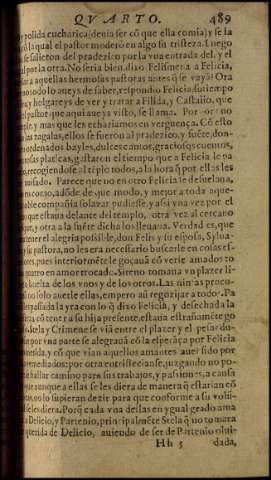 QVARTO. 489
y rolida eucharica (deuia ser cõ que ella comia) y se la
cõ la qual el pastor moderò en algo su tristeza. Luego
se salieron del pradezico por la vna entrada del, y el
por la otra. No seria bien dixo Felismena a Felicia,
a aquellas hermosas pastoras antes que se vayã? Ora
modo lo aueys de saber, respondio Felicia, su tiempo
y holgareys de ver y tratar a Filida, y Castalio, que
el pastor que aqui aueys visto, se llama. Por
y mas que les echariamos en verguença. Cõ esto
zagalas, ellos se fueron al pradezico, y fuéte, don-
ordenados bayles, dulces cantos, graciosos cuentos,
platicas, gastaron el tiempo que a Felicia le pa
recogiendose al tẽplo todos, a la hora q̃ por ellas les
Parece que no en otro Felicia se desuelaua,
de que modo, y mejor a toda aque-
compañia solazar pudiesse, y assi vna vez por el
que estaua delante del templo, otra vez al cercano
que, y otra a la fuẽte dicha los lleuaua. Verdad es, que
la alegria possible, don Felis y su esposa, Sylua-
su pastora, no les era necessario buscarle en cosas es-
pues interiormẽte le goçauã cõ verse amados to
en amor trocado. Sireno tomaua vn plazer li-
buelta de los vnos y de los otros. Las ninfas procu-
no solo auerle ellas, empero aũ regozijar a todos.
passada la yra con lo q̃ dixo Felicia, y desechada la
cõ tener a su hija presente, estaua estrañamẽte go
Stela y Crimene se vía entre el plazer y el pesar du-
por vna parte se alegraua cõ la esperãça por Felicia
y cõ que vian aquellos amantes auer sido por
remediados: por otra entristecianse, juzgando no po-
hallar camino para sus trabajos, y passiones, a causa
aunque a ellas se les diera de manera q̃ estarian cõ
no lo supieran dezir para que conforme a su volũ-
se les diera. Porq̃ cada vna dellas en ygual grado ama
a Delicio, y Partenio, principalmẽte Stela q̃ no tomara
querida de Delicio, auiendo de ser de Partenio olui-
Hh 5 dada,